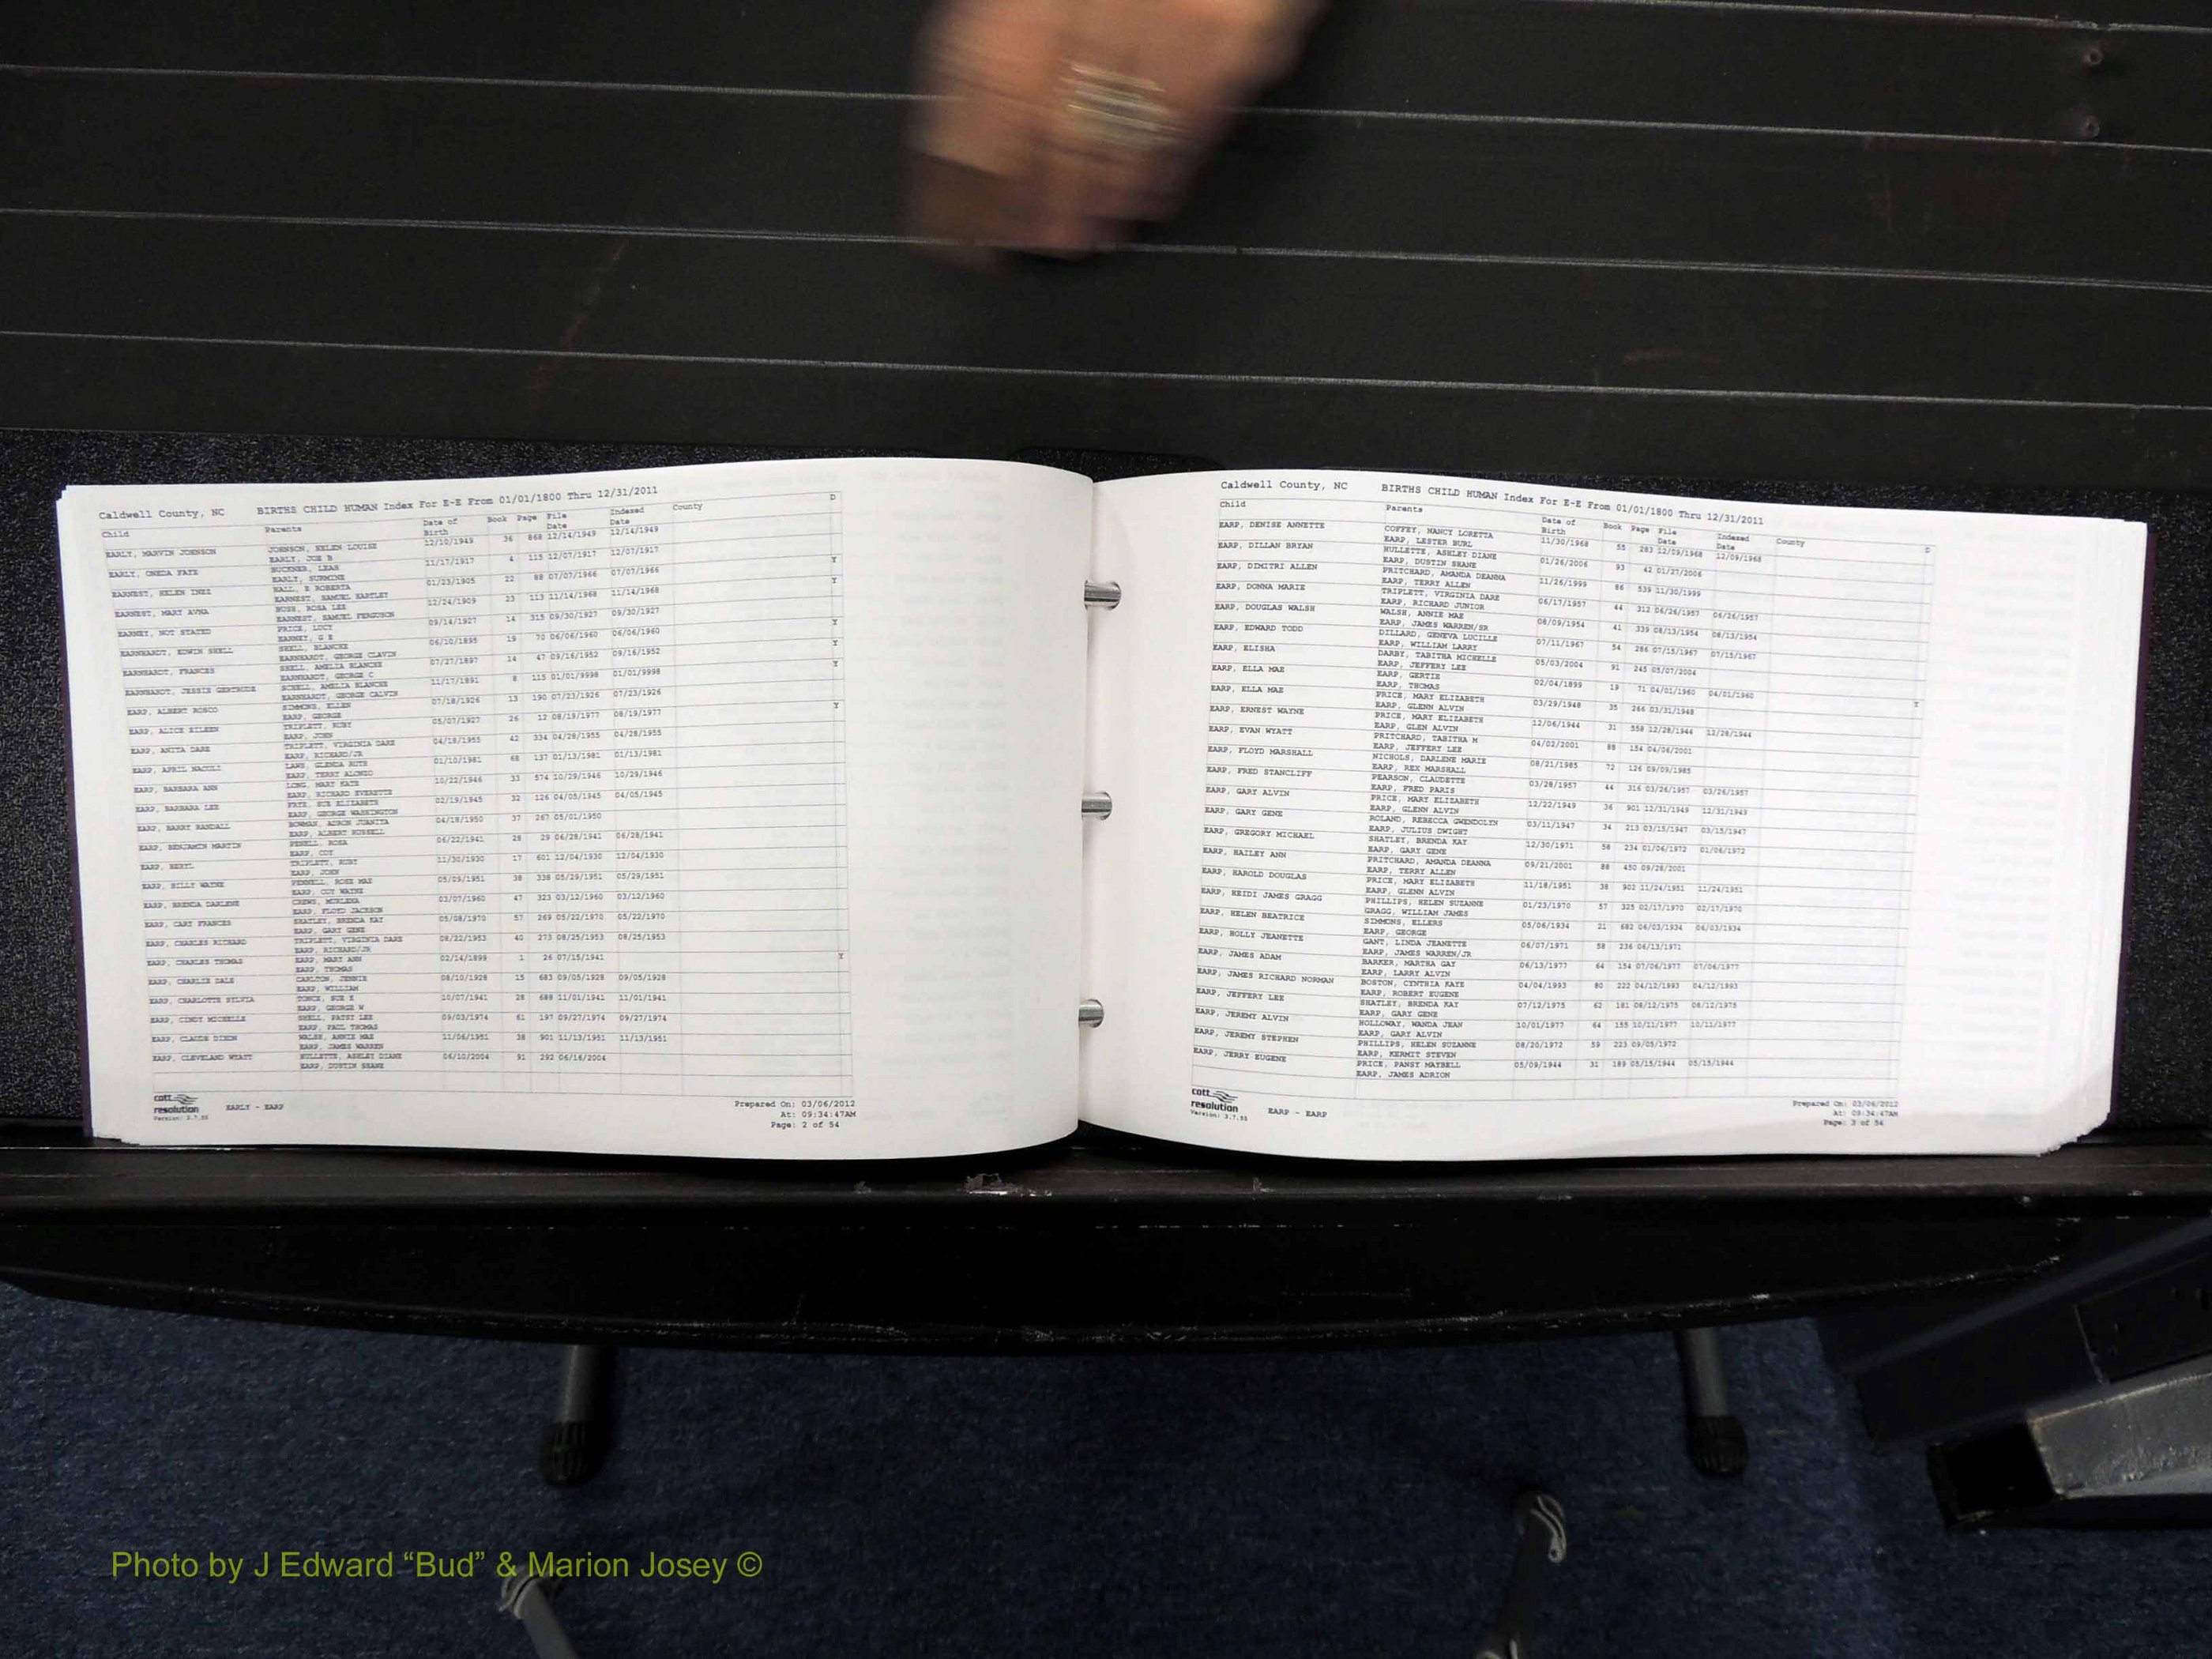 Caldwell County, NC BIRTHS CHILD HUMAN Index For E-E From 01/01/1800 Thru 12/31/2011
Child Parents Date of Birth Book Page File Date Indexed Date County D
EARLY, MARVIN JOHNSON JOHNSON, HELEN LOUISE 12/10/1949 36 868 12/14/1949 12/14/1949
EARLY, JOE B
EARLY, ONEDA FAYE BUCKNER, LEAH 11/17/1917 4 115 12/07/1917 12/07/1917
EARLY, SURMINE
EARNEST, HELEN INEZ HALL, E ROBERTA 01/23/1905 22 88 07/07/1966 07/07/1966 Y
EARNEST, SAMUEL HARTLEY
EARNEST, MARY AVNA BUSH, ROSA LEE 12/24/1909 23 113 11/14/1968 11/14/1968 Y
EARNEST, SAMUEL FERGUSON
EARNEY, NOT STATED PRICE, LUCY 09/14/1927 14 315 09/30/1927 09/30/1927
EARNEY, G E
EARNHARDT, EDWIN SHELL SHELL, BLANCHE 06/10/1895 19 70 06/06/1960 06/06/1960 Y
EARNHARDT, GEORGE CLAVIN
EARNHARDT, FRANCES SHELL, AMELIA BLANCHE 07/27/1897 14 47 09/16/1952 09/16/1952 Y
EARNHARDT, GEORGE C
EARNHARDT, JESSIE GERTRUDE SCHELL, AMELIA BLANCHE 11/17/1891 8 115 01/01/9998 01/01/9998 Y
EARNHARDT, GEORGE CALVIN
EARP, ALBERT ROSCO SIMMONS, ELLEN 07/18/1926 13 190 07/23/1926 07/23/1926
EARP, GEORGE
EARP, ALICE EILEEN TRIPLETT, RUBY 05/07/1927 26 12 08/19/1977 08/19/1977 Y
EARP, JOHN
EARP, ANITA DARE TRIPLETT, VIRGINIA DARE 04/18/1955 42 334 04/28/1955 04/28/1955
EARP, RICHARD/JR
EARP, APRIL LAWS, GLENDA RUTH 01/10/1981 68 137 01/13/1981 01/13/1981
EARP, TERRY ALONZO
EARP, BARBARA ANN LONG, MARY KATE 10/22/1946 33 574 10/29/1946 10/29/1946
EARP, RICHARD EVERETTE
EARP, BARBARA LEE FRYE, SUE ELIZABETH 02/19/1945 32 126 04/05/1945 04/05/1945
EARP, GEORGE WASHINGTON
EARP, BARRY RANDALL BOWMAN, ADRON JUANITA 04/18/1950 37 267 05/01/1950
EARP, ALBERT RUSSELL
EARP, BENJAMIN MARTIN PENELL, ROSA 06/22/1941 28 29 06/28/1941 06/28/1941
EARP, COY
EARP, BERYL TRIPLETT, RUBY 11/30/1930 17 601 12/04/1930 12/04/1930
EARP, JOHN
EARP, BILLY WAYNE PENNELL, ROSE MAE 05/09/1951 38 338 05/29/1951 05/29/1951
EARP, COY WAYNE
EARP, BRENDA DARLENE CREWS, MURLENA 03/07/1960 47 323 03/12/1960 03/12/1960
EARP, FLOYD JACKSON
EARP, CARY FRANCES SHATLEY, BRENDA KAY 05/08/1970 57 269 05/22/1970 05/22/1970
EARP, GARY GENE
EARP, CHARLES RICHARD TRIPLETT, VIRGINIA DARE 08/22/1953 40 273 08/25/1953 08/25/1953
EARP, RICHARD/JR
EARP, CHARLES THOMAS EARP, MARY ANN 02/14/1899 1 26 07/15/1941 Y
EARP, THOMAS
EARP, CHARLIE DALE CARLTON, JENNIE 08/10/1928 15 683 09/05/1928 09/05/1928
EARP, WILLIAM
EARP, CHARLOTTE SYLVIA YONCE, SUE E 10/07/1941 28 688 11/01/1941 11/01/1941
EARP, GEORGE W
EARP, CINDY MICHELLE SHELL, PATSY LEE 09/03/1974 61 197 09/27/1974 09/27/1974
EARP, PAUL THOMAS
EARP, CLAUDE DIXON WALSH, ANNIE MAE 11/06/1951 38 901 11/13/1951 11/13/1951
EARP, JAMES WARREN
EARP, CLEVELAND WYATT HULLETTE, ASHLEY DIANE 06/10/2004 91 292 06/16/2004
EARP, DUSTIN SHANE
cott resolution Version: 3.7.55 EARLY - EARP
Prepared On: 03/06/2012
At: 09:34:47AM
Page: 2 of 54
Caldwell County, NC BIRTHS CHILD HUMAN Index For E-E From 01/01/1800 Thru 12/31/2011
Child Parents Date of Birth Book Page File Date Indexed Date County D
EARP, DENISE ANNETTE COFFEY, NANCY LORETTA 11/30/1968 55 283 12/09/1968 12/09/1968
EARP, LESTER BURL
EARP, DILLAN BRYAN HULLETTE, ASHLEY DIANE 01/26/2006 93 42 01/27/2006
EARP, DUSTIN SHANE
EARP, DIMITRI ALLEN PRITCHARD, AMANDA DEANNA 11/26/1999 86 539 11/30/1999
EARP, TERRY ALLEN
EARP, DONNA MARIE TRIPLETT, VIRGINIA DARE 06/17/1957 44 312 06/26/1957 06/26/1957
EARP, RICHARD JUNIOR
EARP, DOUGLAS WALSH WALSH, ANNIE MAE 08/09/1954 41 339 08/13/1954 08/13/1954
EARP, JAMES WARREN/SR
EARP, EDWARD TODD DILLARD, GENEVA LUCILLE 07/11/1967 54 286 07/15/1967 07/15/1967
EARP, WILLIAM LARRY
EARP, ELISHA DARBY, TABITHA MICHELLE 05/03/2004 91 245 05/07/2004
EARP, JEFFERY LEE
EARP, ELLA MAE EARP, GERTIE 02/04/1899 19 71 04/01/1960 04/01/1960 Y
EARP, THOMAS
EARP, ELLA MAE PRICE, MARY ELIZABETH 03/29/1948 35 266 03/31/1948
EARP, GLENN ALVIN
EARP, ERNEST WAYNE PRICE, MARY ELIZABETH 12/06/1944 31 558 12/28/1944 12/28/1944
EARP, GLEN ALVIN
EARP, EVAN WYATT PRITCHARD, TABITHA M 04/02/2001 88 154 04/06/2001
EARP, JEFFERY LEE
EARP, FLOYD MARSHALL NICHOLS, DARLENE MARIE 08/21/1985 72 126 09/09/1985
EARP, REX MARSHALL
EARP, FRED STANCLIFF PEARSON, CLAUDETTE 03/28/1957 44 316 03/26/1957 03/26/1957
EARP, FRED PARIS
EARP, GARY ALVIN PRICE, MARY ELIZABETH 12/22/1949 36 901 12/31/1949 12/31/1949
EARP, GLENN ALVIN
EARP, GARY GENE ROLAND, REBECCA GWENDOLYN 03/11/1947 34 213 03/15/1947 03/15/1947
EARP, JULIUS DWIGHT
EARP, GREGORY MICHAEL SHATLEY, BRENDA KAY 12/30/1971 58 234 01/06/1972 01/06/1972
EARP, GARY GENE
EARP, HAILEY ANN PRITCHARD, AMANDA DEANNA 09/21/2001 88 450 09/28/2001
EARP, TERRY ALLEN
EARP, HAROLD DOUGLAS PRICE, MARY ELIZABETH 11/18/1951 38 902 11/24/1951 11/24/1951
EARP, GLENN ALVIN
EARP, HEIDI JAMES GRAGG PHILLIPS, HELEN SUZANNE 01/23/1970 57 325 02/17/1970 02/17/1970
GRAGG, WILLIAM JAMES
EARP, HELEN BEATRICE SIMMONS, ELLERS 05/06/1934 21 682 06/03/1934 06/03/1934
EARP, GEORGE
EARP, HOLLY JEANETTE GANT, LINDA JEANETTE 06/07/1971 58 236 06/13/1971
EARP, JAMES WARREN/JR
EARP, JAMES ADAM BARKER, MARTHA GAY 06/13/1977 64 154 07/06/1977 07/06/1977
EARP, LARRY ALVIN
EARP, JAMES RICHARD NORMAN BOSTON, CYNTHIA KAYE 04/04/1993 80 222 04/12/1993 04/12/1993
EARP, ROBERT EUGENE
EARP, JEFFERY LEE SHATLEY, BRENDA KAY 07/12/1975 62 181 08/12/1975 08/12/1975
EARP, GARY GENE
EARP, JEREMY ALVIN HOLLOWAY, WANDA JEAN 10/01/1977 64 155 10/11/1977 10/11/1977
EARP, GARY ALVIN
EARP, JEREMY STEPHEN PHILLIPS, HELEN SUZANNE 08/20/1972 59 223 09/05/1972
EARP, KERMIT STEVEN
EARP, JERRY EUGENE PRICE, PANSY MAYBELL 05/09/1944 31 189 05/15/1944 05/15/1944
EARP, JAMES ADRION
cott resolution Version: 3.7.55 EARP - EARP
Prepared On: 03/06/2012
At: 09:34:47AM
Page: 3 of 54
Photo by J Edward “Bud” & Marion Josey ©